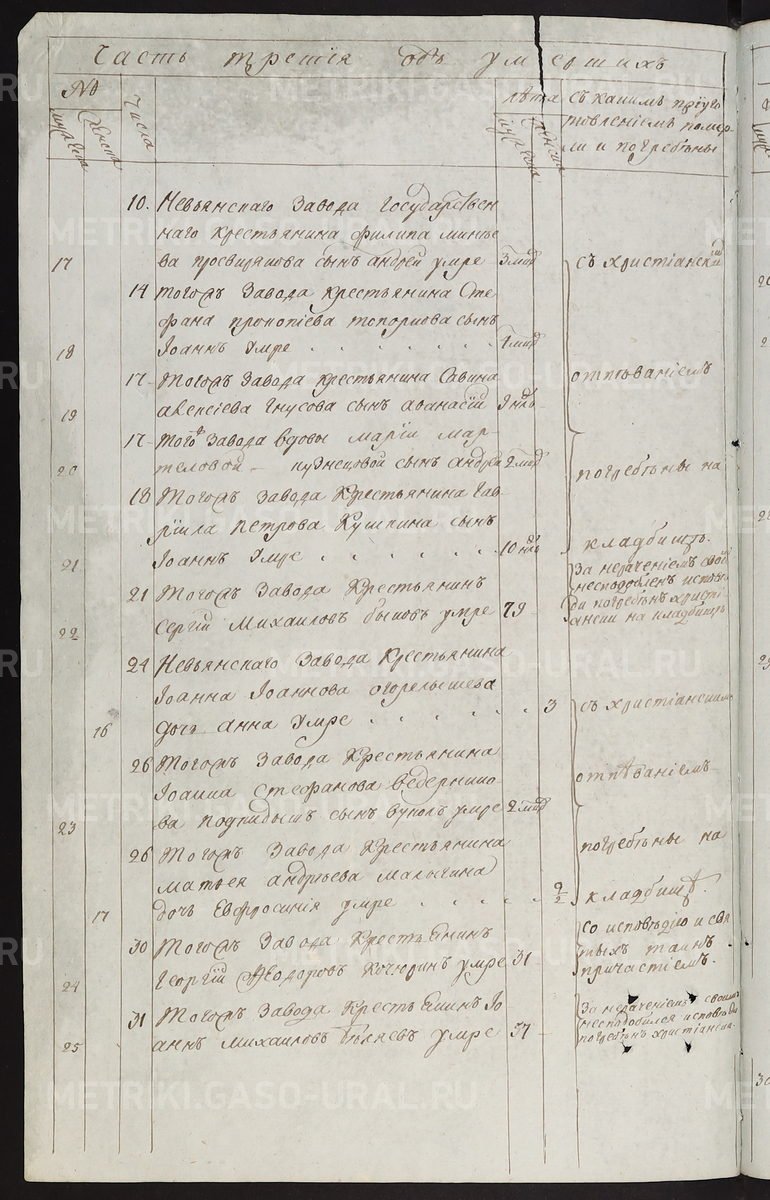 Часть третія объ умершихъ
№
мужеска
женска
Числа
лѣта
мужеска
женска
съ какимъ пріуго
товленіемъ помер
ли и погребѣны
10. Невьянскаго Завода Государствен
наго крестьянина Филипа
17 ва сынъ андрей умре 3 мцъ съ христіанскимъ
14 тогожъ Завода крестьянина Сте
фана прокопіева топоркова сынъ
18 Іоаннъ Умре . . . . . 4 мцъ
17 Тогожъ Завода крестьянина Савина отпѣваніемъ
19 алексіева Гнусова сынъ аѳанасій 9 нлъ
17 Того Завода вдовы маріи мар-
20 теловой кузнецовой сынъ андрей 2 мцъ погребѣны на
18 Тогожъ Завода Крестьянина Гав-
ріила петрова Кушкина сынъ
21 Іоаннъ Умре . . . . . . 10 нлъ кладбищѣ.
21 Тогожъ Завода Крестьянинъ За нераченіемъ
22 Сергій Михаиловъ быковъ умре 79 погребѣнъ христі
ански на кладбищѣ
24 Невьянскаго Завода Крестьянина
Іоанна Іоаннова огорелышева
16 дочь анна Умре . . . . . . 3 съ христіанскимъ
26 Тогожъ Завода Крестьянина
Іоанна Стефанова ведернико- отпѣваніемъ
23 ва подкидышъ сынъ вуколъ умре 2 мцъ
26 Тогожъ Завода Крестьянина погребѣны на
матѳея андрѣева малыгина
17 дочь Евфросинія умре . . . . . кладбищѣ.
30 Тогожъ Завода Крестьянинъ со исповѣдію и свя
24 Георгій Ѳеодоровъ Кочюринъ умре 31 тыхъ таинъ
причастіемъ.
31 Тогожъ Завода Крестьянинъ Іо За нераченіемъ своимъ
25 аннъ михаиловъ бѣляевъ умре 37 несподобился исповѣди
погребѣнъ христіански
METRIKI.GASO-URAL.RU